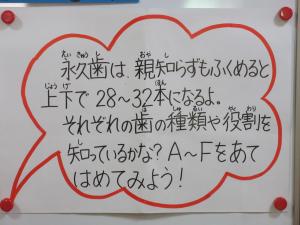 永久歯は、親知らずもふくめると
上下で28〜32本になるよ。
それぞれの歯の種類や役割を
知っているかな?A〜Fをあて
はめてみよう!